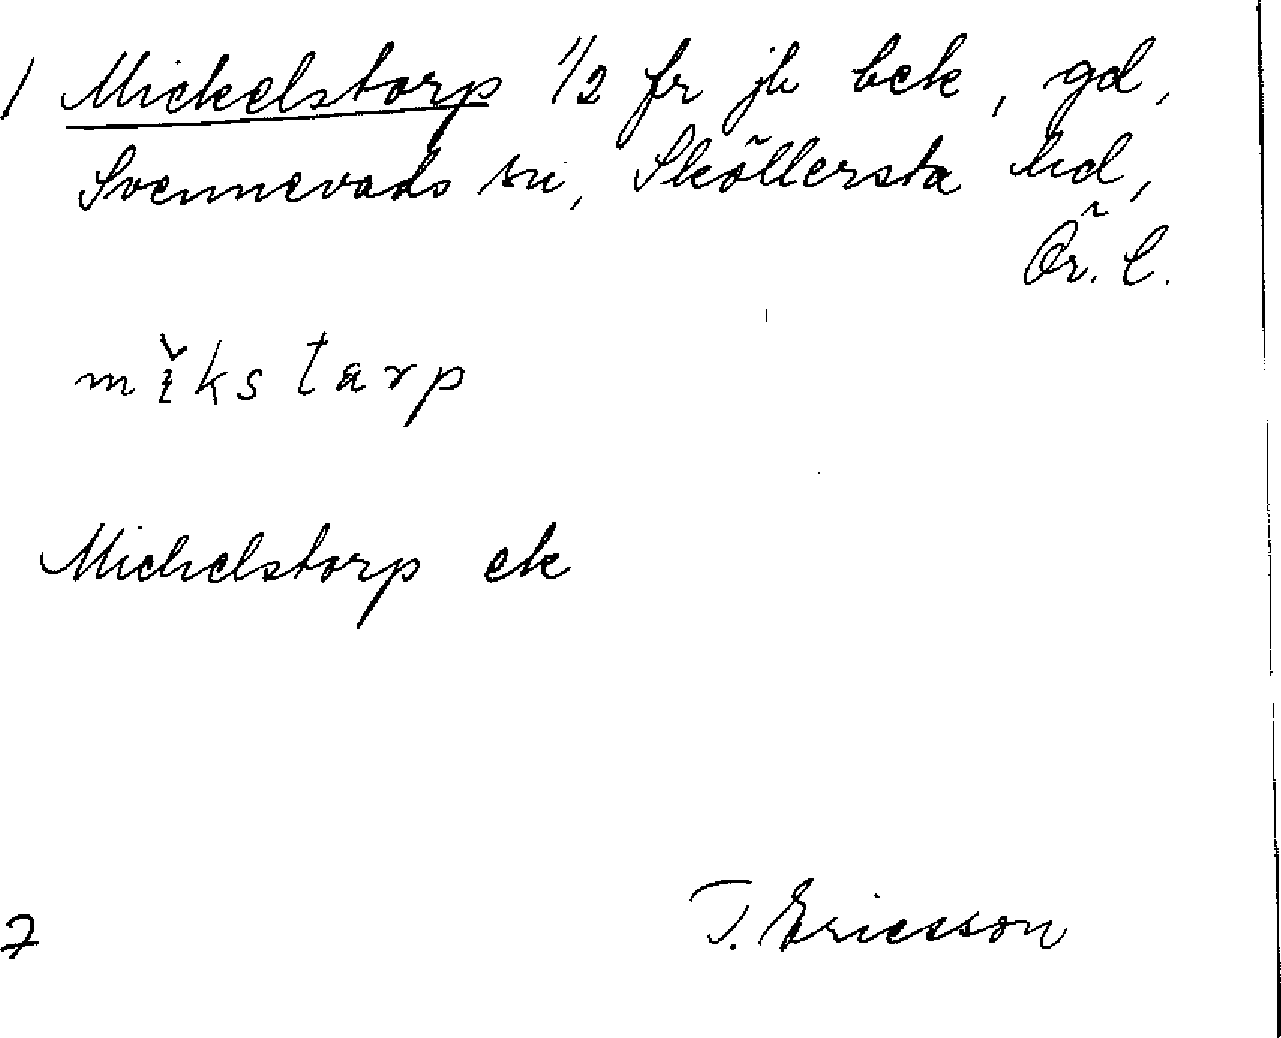 / Mickelstorp 1/2 fr jb bek, gd,
Svennevads sn, Sköllersta hd,
Ör. l.
mĭkstarp
Michelstorp ek
7 T. Ericsson